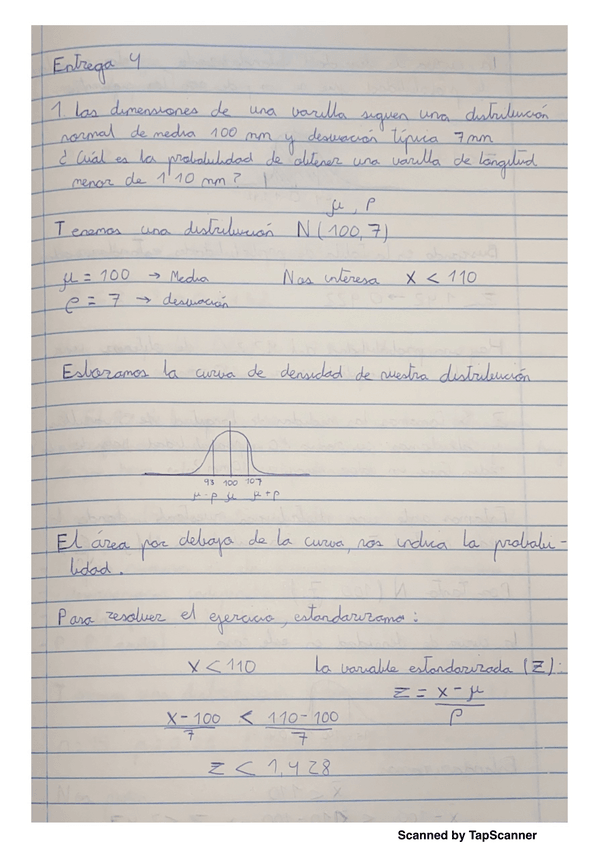 Entrega 4
1. Las dimensiones de una varilla siguen una distribución
normal de media 100 mm y desviación típica 7 mm
¿Cuál es la probabilidad de obtener una varilla de longitud
menor de 110 mm?
μ, ρ
Tenemos una distribución N(100,7)
μ = 100 → Media Nos interesa X < 110
ρ = 7 → desviación
Esbozamos la curva de densidad de nuestra distribución
93 100 107
μ-ρ μ μ+ρ
El área por debajo de la curva, nos indica la probabi-
lidad.
Para resolver el ejercicio, estandarizamos:
X < 110 la variable estandarizada (Z):
Z = X - μ / ρ
X - 100 / 7 < 110 - 100 / 7
Z < 1,428
Scanned by TapScanner